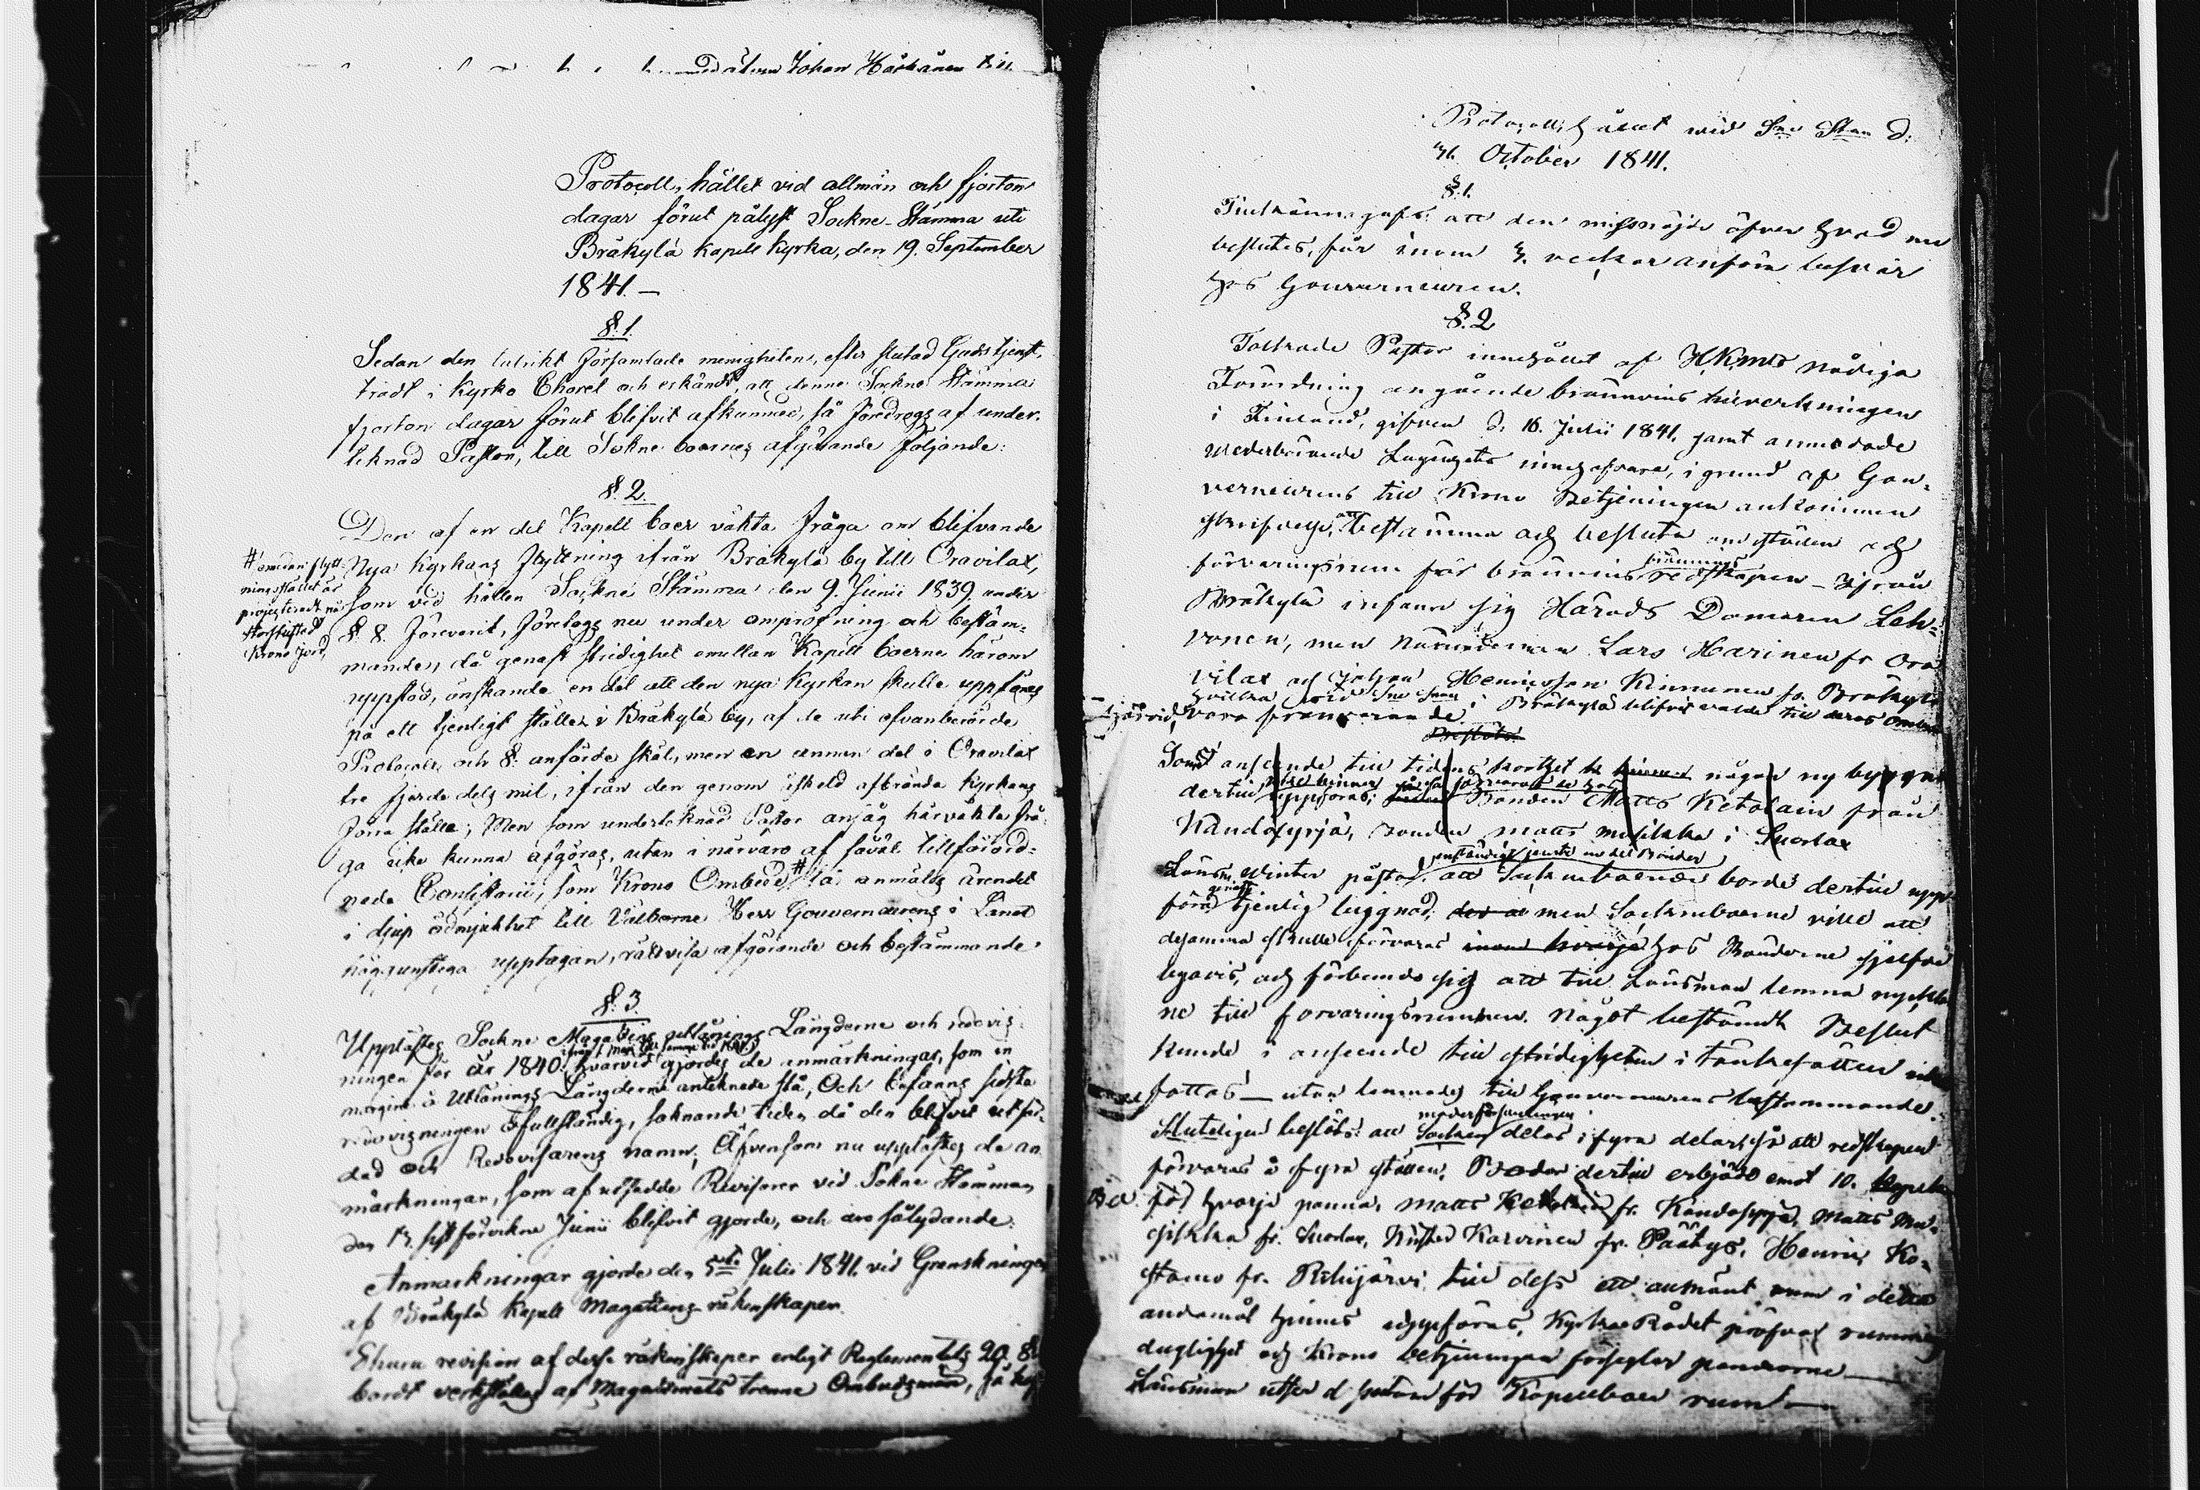 Johan Härkänen till
Protocoll, hållet vid allmän och fjorton
dagar förut pålyst Sockne-Stämma uti
Bräkylä Kapell Kyrka, den 19. September
1841. —
§. 1.
Sedan den talrikt församlade menigheten, efter slutad Gudstjenst,
trädt i Kyrko Choret och erkändt, att denne Sockne Stämma
fjorton dagar förut blifvit afkunnad, så föredrogs af under-
teknad Pastor, till Sokne boernes afgörande följande:
§. 2.
Den af en del Kapell boer väkta fråga om blifvande
Nya Kyrkans flyttning ifrån Bräkylä by till Oravilax,
som vid hållen Sockne Stämma den 9. Junii 1839 under
§. 8. förevarit, företogs nu under ompröfning och bestäm-
mande, då genast stridighet emellan Kapell boerne härom
uppstod, önskande en del att den nya Kyrkan skulle uppföras
på ett tjenligt ställe i Bräkylä by, af de uti ofvanberörde
Protocoll och §. anförde skäl, men en annan del i Oravilax
tre fjerdedels mil, ifrån den genom åskeld afbrända Kyrkans
förra ställe; Men som underteknad Pastor ansåg härväkta frå-
ga icke kunna afgöras, utan i närvaro af såväl tillförord-
nade Consistorii, som Krono Ombud # så anmäldes ärendet
i djup ödmjukhet till Välborne Herr Gouverneurens i Länet
höggunstiga upptagan, rättvisa afgörande och bestämmande.
# emedan flytt-
ningsstället är
projecteradt på
oskiftad
Krono jord,
§. 3.
Upplästes Sockne Magasins utlånings Längderne och redovis-
ningen för år 1840. hvarvid gjordes de anmärkningar, som in
margine å Utlånings Längderne anteknade stå, Och befanns sidsta
redovisningen ofullständig, saknande tiden då den blifvit uthän-
dad och Redovisarens namn; Äfvensom nu upplästes de an-
märkningar, som af utsedde Revisorer vid Sokne Stämman
den 13 sistförvikne Junii blifvit gjorde, och äro sålydande:
Anmärkningar gjorde den 5te Julii 1841 vid Granskningen
af Bräkylä Kapell Magasins räkenskaper.
Ehuru revision af desse räkenskaper enligt Reglementets 20 §.
bordt verkställas af Magasinets trenne Ombudsmän, så
Protocoll, hållet wid Sne Stan d.
October 1841.
§. 1.
Tillkännagafs: att den missnöjde öfver hvad nu
beslutes, får inom veckor anföra besvär
hos Gouverneuren.
§. 2
Tolkade Pastor innehållet af HKMts nådiga
Förordning angående brännvins tillverkningen
i Finland, gifven d. 16. Julii 1841. samt anmodade
wederbörande Lagens innehafvare, i grund af Gou-
verneurens till Krono Betjeningen ankommen
skrifvelse, att bestämma och besluta om ställen och
förvaringsrum för brännvins redskapen — Ifrån
Bräkylä infann sig Härads Domaren Leh-
vonen, men Nämndeman Lars Harinen fr. Ora-
vilax och Johan Henricsson Kinnunen fr. Bräkylä
hvilka wid Sne Stan i Bräkylä blifvit valde till deras ombud
voro frånvarande.
Som anseende till tidens korthet någon ny byggnad
dertill uppföras; Bonden Matts Ketolain från
Kandosyrjä, bonden Matts Musikka i Suorlax
Länsm. Winter påstod, att Socknboerne borde dertill upp-
föra tjenlig byggnad, men Socknboerne ville att
desamma skulle förvaras hos Bönderne sjelfva
byavis, och förbundo sig att till Länsman lemna nycklar-
ne till förvaringsrummen. Något bestämdt Beslut
kunde i anseende till stridigheten i tänkesätten icke
fattas — utan lemnades till Gouverneurens bestämmande.
Slutligen beslöts: att Socken delas i fyra delar, så att redskapen
förvaras å fyra ställen. Bodar dertill erbjödo emot 10. kopek
för hvarje panna, Matts Ketolain fr. Kandosyrjä, Matts Mu-
sikka fr. Suorlax, Karvinen fr. Päähys, Henric Ko-
stamo fr. Rihijärvi till dess att allmänt rum i detta
ändamål hinnes uppföras, Kyrko Rådet pröfvar rummens
duglighet och Krono betjeningen förseglar pannorne —
Länsman utser för Kapellboer rum —